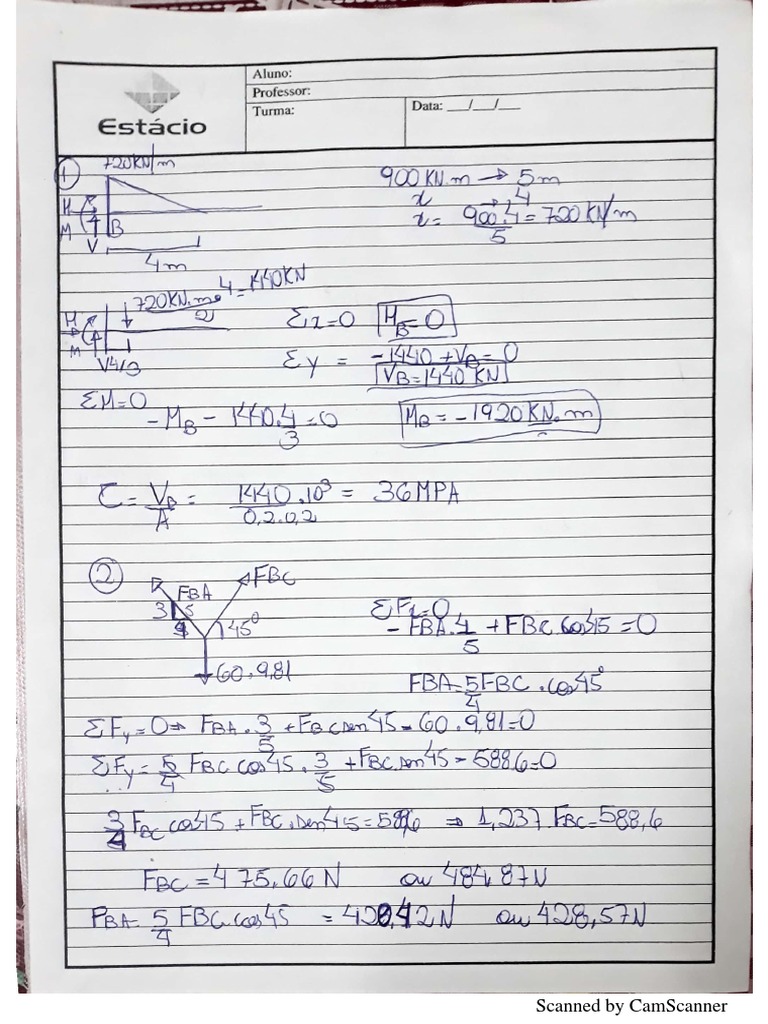 Estácio
Aluno:
Professor:
Turma:
Data: __/__/__
1
720KN/m
H
M
V
B
4m
900 KN.m → 5m
x → 4
x = 900.4 = 720 KN/m
5
720KN.m 4 = 1440KN
2
H
M
V 4/3
Σx=0 HB=0
Σy = -1440 + VB = 0
VB = 1440 KN
ΣM=0
- MB - 1440.4 = 0
3
MB = - 1920 KN.m
τ = VB = 1440.10³ = 36 MPA
A 0,2.0,2
2
FBA
FBC
3 5
4
45°
60.9,81
ΣFx=0
- FBA.4 + FBC.cos45 = 0
5
FBA = 5 FBC.cos45°
4
ΣFy=0 ⇒ FBA.3 + FBC sen45 - 60.9,81=0
5
ΣFy = 5 FBC cos45.3 + FBC.sen45 - 588.6=0
4 5
3 FBC cos45 + FBC.sen45 = 588,6 ⇒ 1,237 FBC = 588,6
4
FBC = 475,66 N ou 484,87N
FBA = 5 FBC cos45 = 420,42 N ou 428,57N
4
Scanned by CamScanner